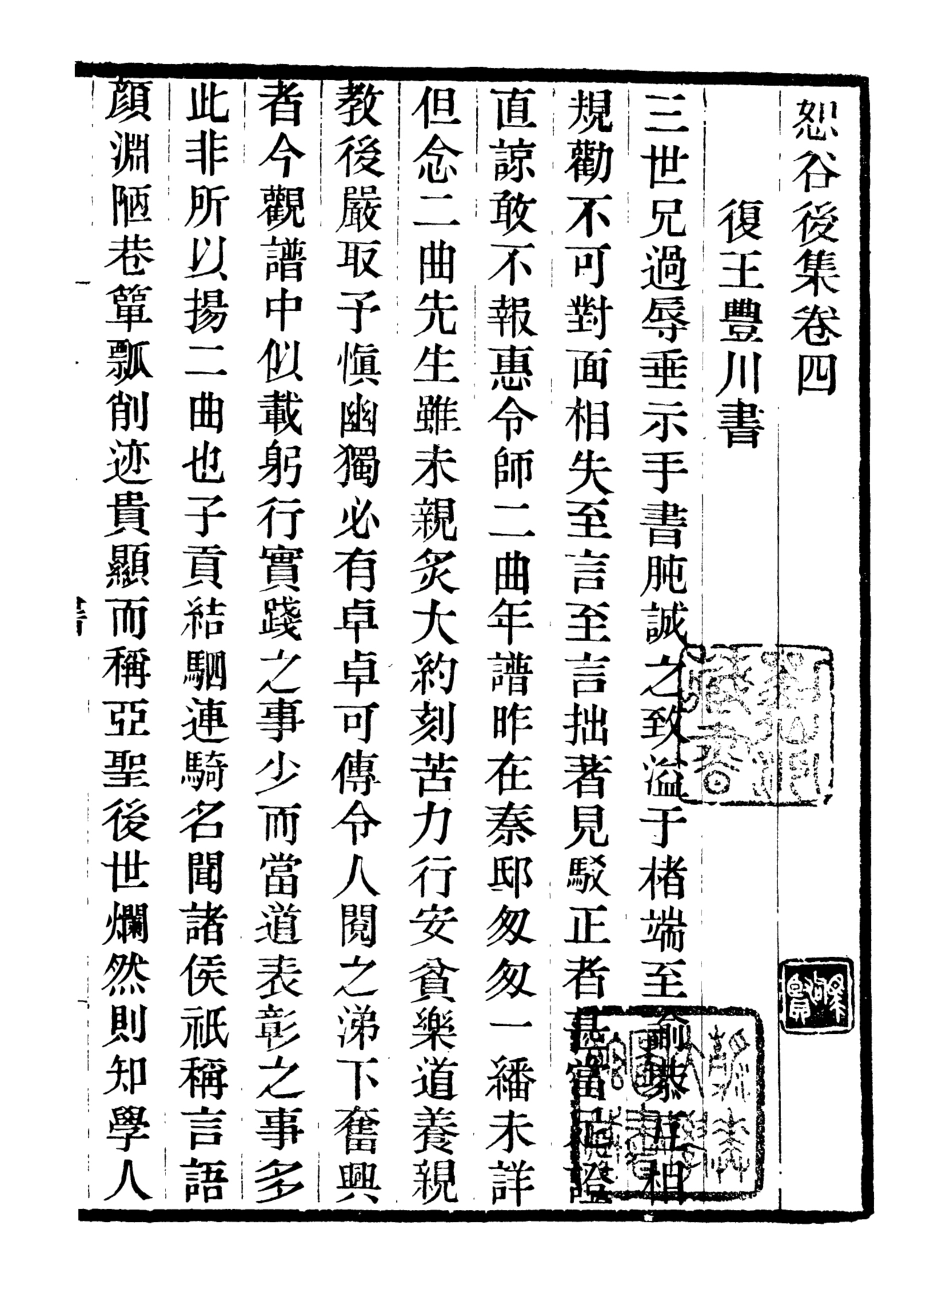 恕谷後集卷四
復王豐川書
三世兄過辱垂示手書肫誠之致溢于楮端至諭恭互相
規勸不可對面相失至言至言拙著見駁正者甚當足證
直諒敢不報惠令師二曲年譜昨在秦邸匆匆一繙未詳
但念二曲先生雖未親炙大約刻苦力行安貧樂道養親
教後嚴取予愼幽獨必有卓卓可傳令人閱之涕下奮興
者今觀譜中似載躬行實踐之事少而當道表彰之事多
此非所以揚二曲也子貢結駟連騎名聞諸侯祇稱言語
顏淵陋巷簞瓢削迹貴顯而稱亞聖後世爛然則知學人